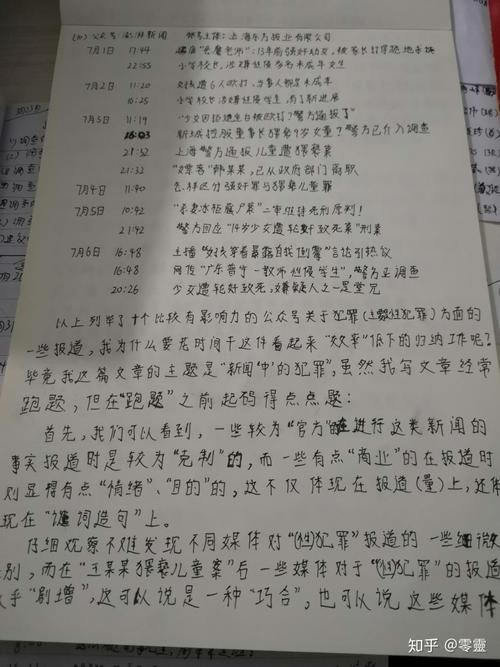 (10) 公众号 澎湃新闻 帐号主体：上海东方报业有限公司
7月1日 17:44 "恶魔老师"：13年前强奸幼女，被家长打穿跪地求饶
22:55 小学校长，涉嫌性侵多名未成年女生
7月2日 11:20 女孩遭6人殴打，当事人都是未成年
16:25 小学校长涉嫌性侵学生，有了新进展
7月3日 11:19 "少女因拒绝表白被殴打？警方通报了"
16:03 新城控股董事长猥亵9岁女童？警方已介入调查
21:32 上海警方通报儿童遭猥亵案
21:32 "嫖客"郝某某，已从政府部门离职
7月4日 11:40 怎样区分强奸罪与猥亵儿童罪
7月5日 10:42 "杀妻冰柜藏尸案"二审维持死刑原判！
21:42 警方回应"14岁少女遭轮奸致死案"刑案
7月6日 16:48 主播"女孩穿着暴露自我倒霉"言论引热议
16:48 网传"广东普宁一教师性侵学生"，警方正调查
20:26 少女遭轮奸致死，嫌疑人之一是堂兄
以上列举了十个比较有影响力的公众号关于犯罪（主要性犯罪）方面的
一些报道，我为什么要花时间干这件看起来"效率"低下的归纳工作呢？
毕竟我这篇文章的主题是"新闻'中'的犯罪"，虽然我写文章经常
跑题，但在"跑题"之前起码得点点题：
首先，我们可以看到，一些较为"官方"的在进行这类新闻的
事实报道时是较为"克制"的，而一些有点"商业"的在报道时
则显得有点"情绪"、"目的"的，这不仅体现在报道(量)上，还体
现在"遣词造句"上。
仔细观察不难发现不同媒体对"(性)犯罪"报道的一些细微
差别，而在"王某某猥亵儿童案"后一些媒体对于"(性)犯罪"的报道
似乎"剧增"，这可以说是一种"巧合"，也可以说这些媒体
知乎 @零靈